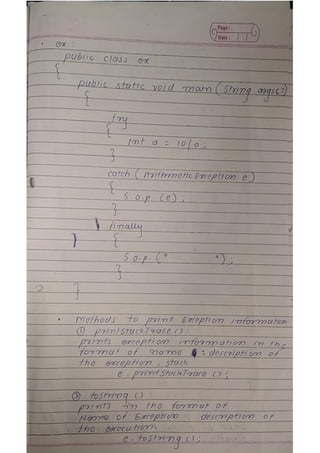 Page:
Date: / /
• ex :
public class ex
{
public static void main (String args[])
{
try
{
int a = 10/0;
}
catch (ArithmeticException e)
{
S.o.p (e);
}
finally
{
S.o.p (" ");
}
}
• Methods to print Exception information
① printStackTrace () :
prints exception information in the
format of name : description of
the exception, stack
e. printStackTrace ();
② toString () :
prints in the format of
Name of Exception : description of
the exception
e. toString ();